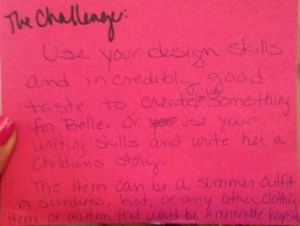 The Challenge:
Use your design skills
and incredibly good
taste to create something
for Belle. Or use your
writing skills and write her a
Childrens story.
The item can be a summer outfit
or sundress, hat, or any other clothing
item or an item that would be a memorable keepsake